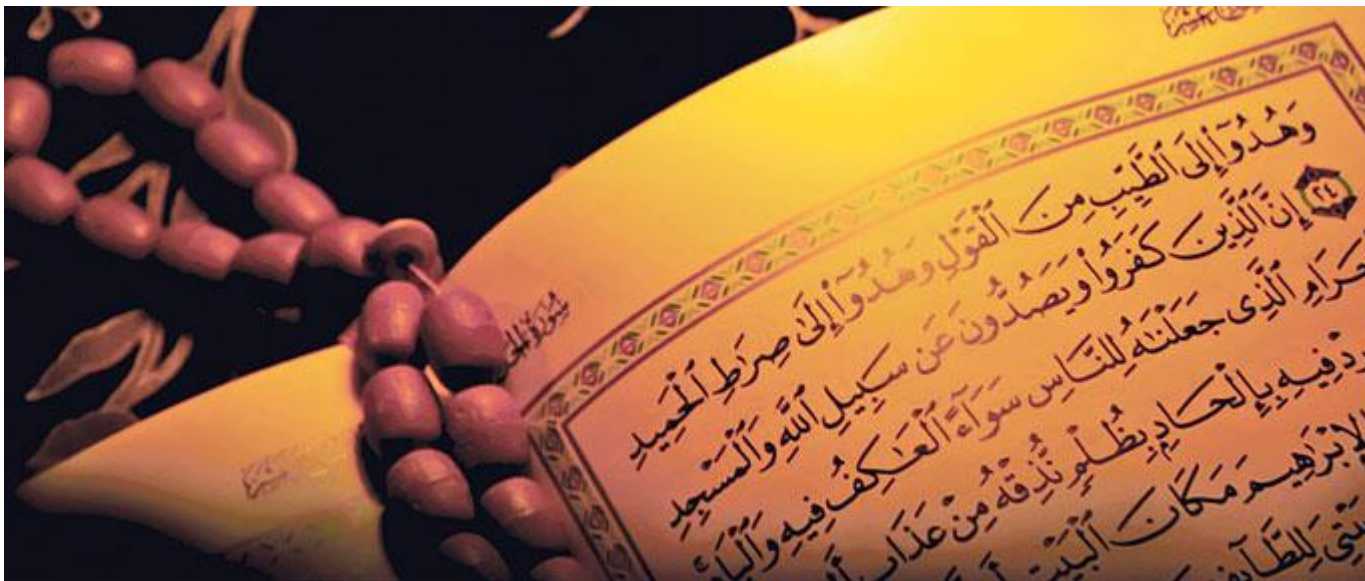 سُورَةُ
وَهُدُوٓا۟ إِلَى ٱلطَّيِّبِ مِنَ ٱلْقَوْلِ وَهُدُوٓا۟ إِلَىٰ صِرَٰطِ ٱلْحَمِيدِ
٢٤ إِنَّ ٱلَّذِينَ كَفَرُوا۟ وَيَصُدُّونَ عَن سَبِيلِ ٱللَّهِ وَٱلْمَسْجِدِ
حَرَامِ ٱلَّذِى جَعَلْنَٰهُ لِلنَّاسِ سَوَآءً ٱلْعَٰكِفُ فِيهِ وَٱلْبَا
رِدْ فِيهِ بِإِلْحَادٍۭ بِظُلْمٍ نُّذِقْهُ مِنْ عَذَابٍ
لِإِبْرَٰهِيمَ مَكَانَ ٱلْبَيْتِ